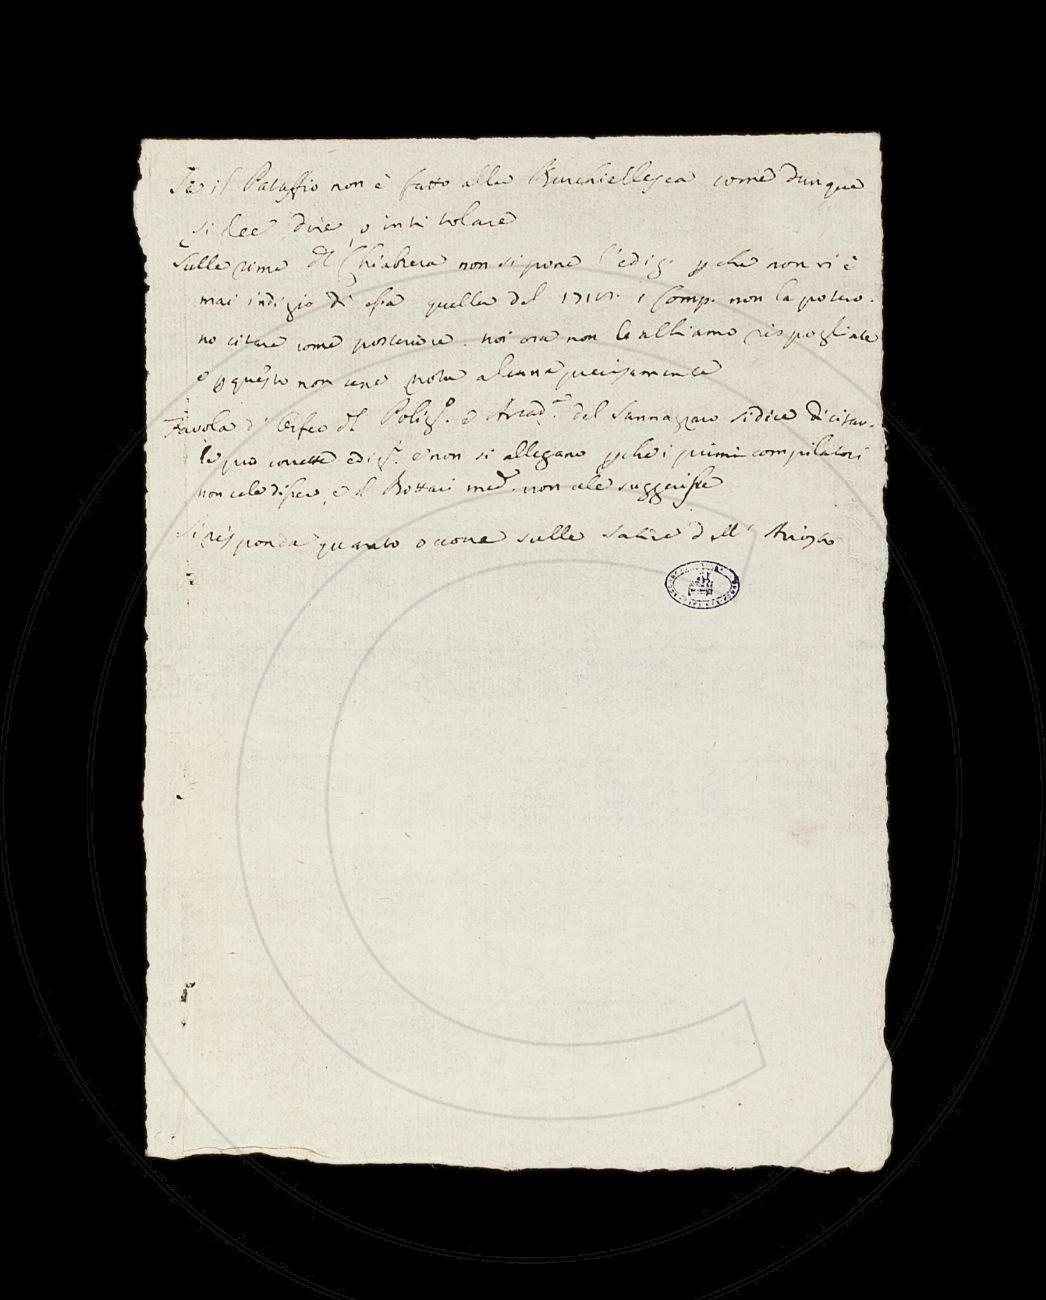 Se il Pataffio non è fatto alla Burchiellesca come dunque
si dee dire, o intitolare
Sulle rime dl Chiabrera non si pone l'ediz. pche non vi è
mai indizio di essa quella del i Comp. non la potero-
no citare come posteriore. noi ora non le abbiamo rispogliate
e pquesto non cene nota alcuna precisamente
Favola d'Orfeo dl Poliz.o e Arcad.a del Sannazzaro si dice di citar-
le più corrette ediz.i e non si allegano pche i primi compilatori
non cele disero, e il Bottari med.o non cele suggerisce
Si risponda quanto occorre sulle Satire dell' Ariosto